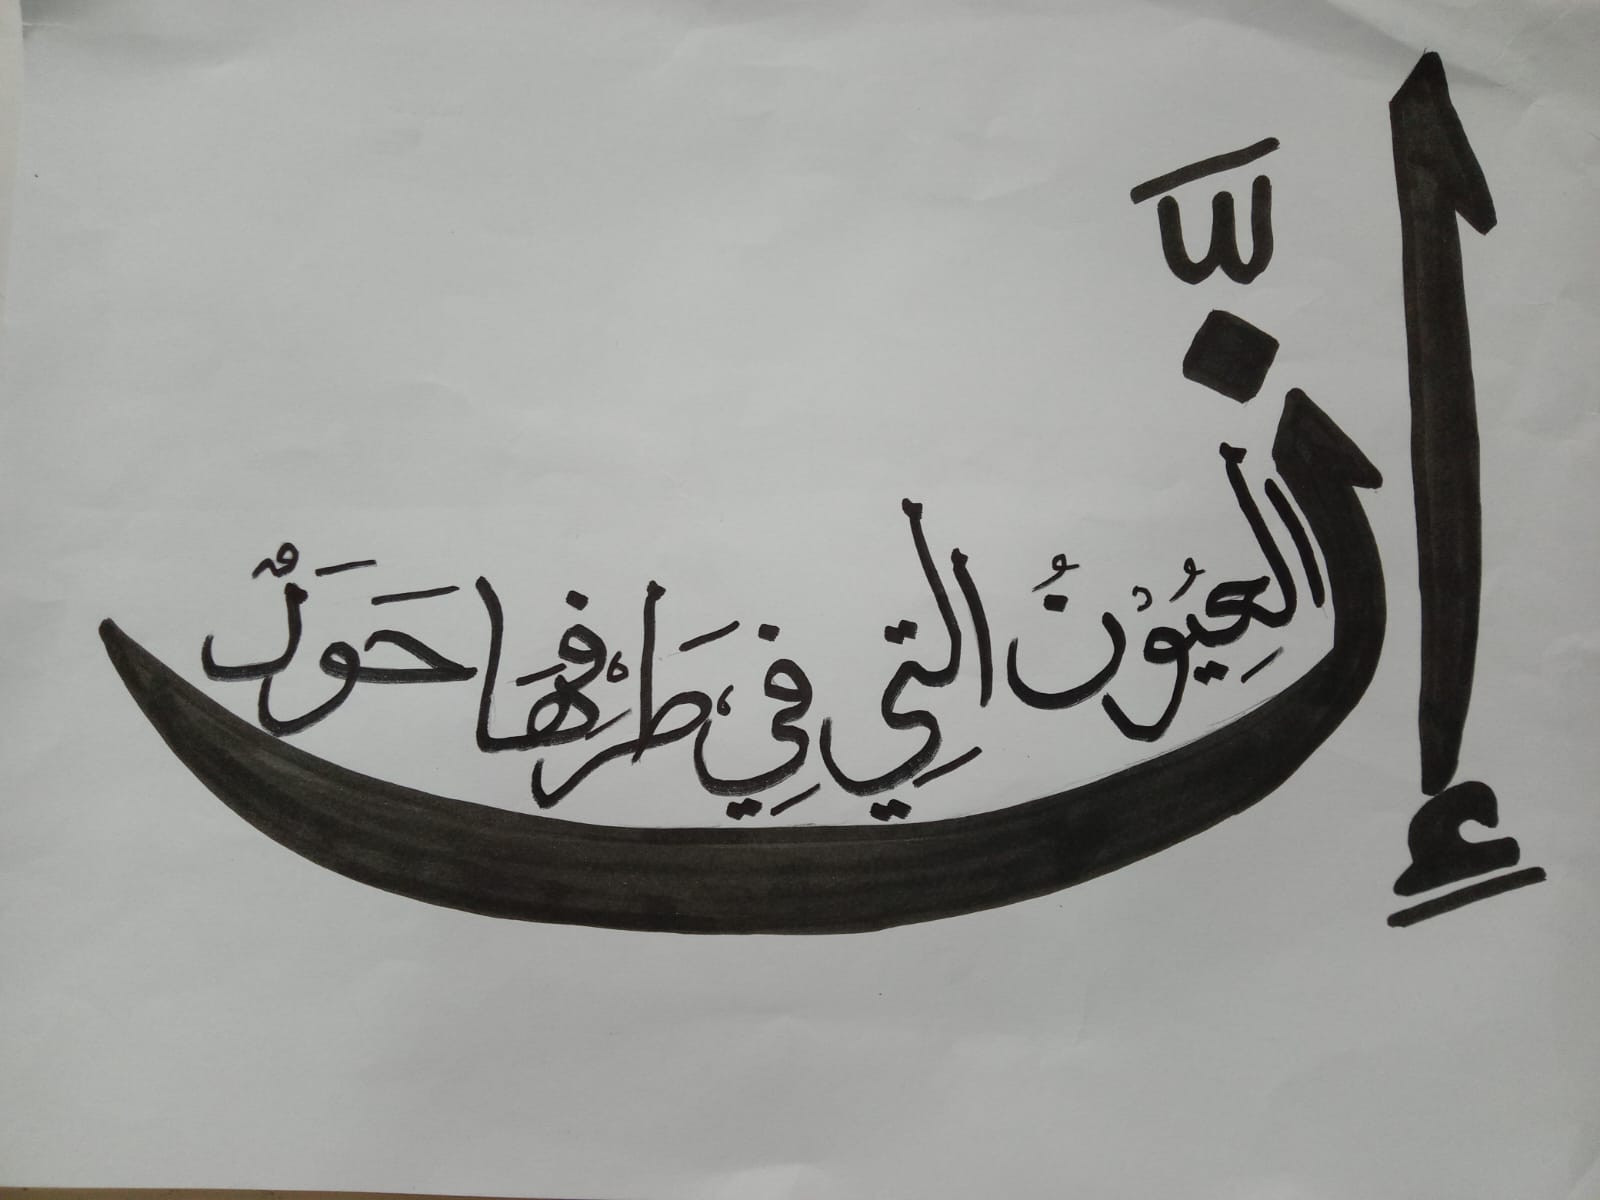 إِنَّ العِيُوْنُ التِي فِي طَرْفِهَا حَوَلٌ